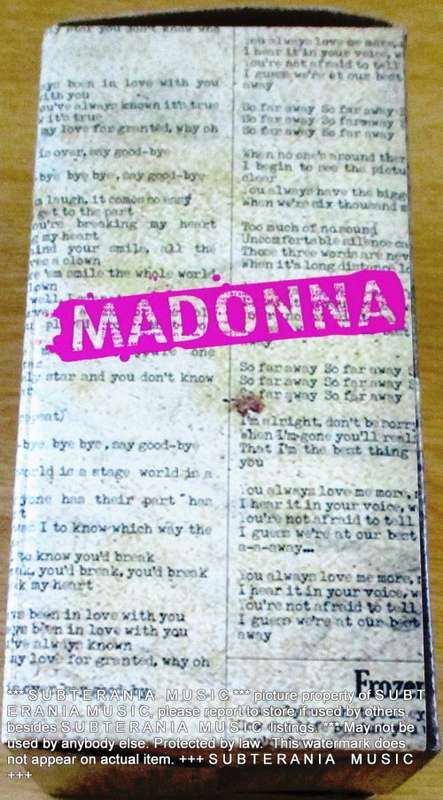 ays been in love with you
ith you
ou've always known it's true
w it's true
my love for granted, why oh
is over, say good-bye
bye bye bye, say good-bye
a laugh, it comes so easy
get to the part
ou're breaking my heart
g my heart
hind your smile, all the
res a clown
re 'em smile the whole world
lown
MADONNA
ly star and you don't know
peat)
bye bye bye, say good-bye
world is a stage world is a
yone has their part has
I to know which way the
to know you'd break
you'd break, you'd break
ak my heart
ys been in love with you
ays been in love with you
u've always known
my love for granted, why oh
you always love me more,
I hear it in your voice, w
You're not afraid to tell
I guess we're at our best
away
So far away So far away
So far away So far away
So far away So far away
When no one's around ther
I begin to see the pictu
clear
You always have the bigg
When we're six thousand m
Too much of no sound
Uncomfortable silence ca
Those three words are nev
When it's long distance
So far away So far away
So far away So far away
So far away So far away
I'm alright, don't be sorry
When I'm gone you'll real
That I'm the best thing
you
You always love me more,
I hear it in your voice, w
You're not afraid to tell
I guess we're at our best
a-a-away...
You always love me more,
I hear it in your voice, w
You're not afraid to tell
I guess we're at our best
away
Frozen
*** S U B T E R A N I A M U S I C *** picture property of S U B T
E R A N I A M U S I C, please report to store if used by others
besides S U B T E R A N I A M U S I C listings. *** May not be
used by anybody else. Protected by law. This watermark does
not appear on actual item. +++ S U B T E R A N I A M U S I C
+++